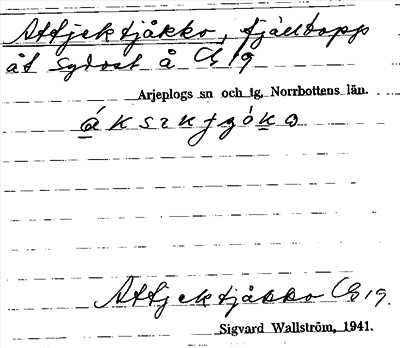 Attjektjåkko, fjälltopp
åt sydost å C 19
Arjeplogs sn och tg, Norrbottens län.
Attjektjåkko C 19.
Sigvard Wallström, 1941.